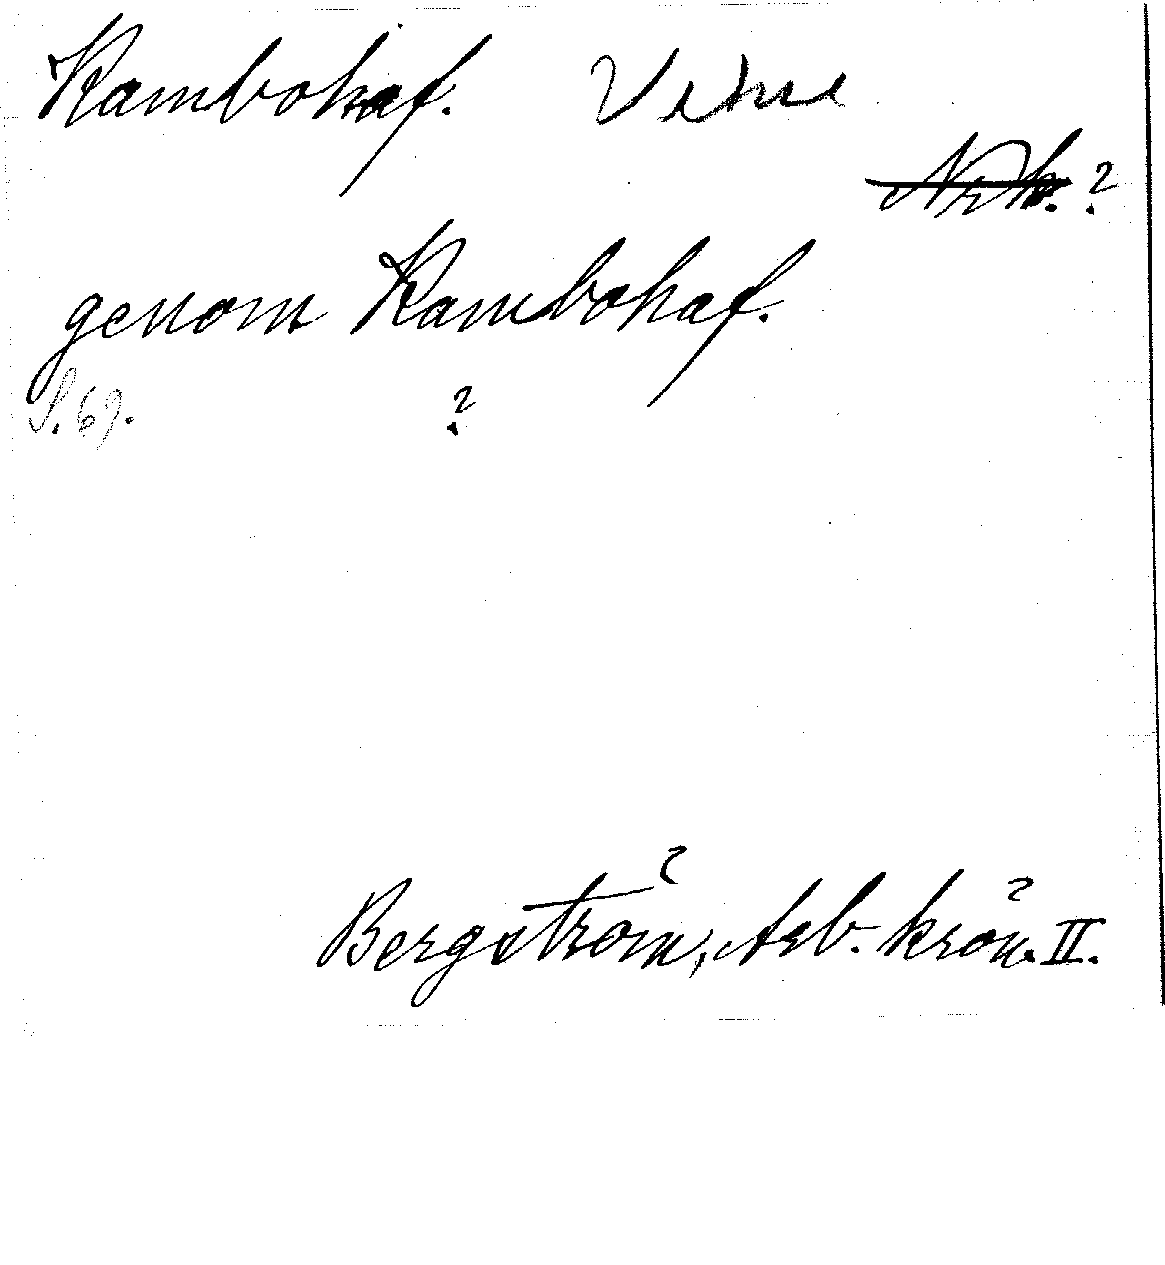 Kambohaf. Vehse
N̶r̶k̶.̶ ?
genom Kambohaf.
S. 69. ?
Bergström, Arb. krön. II.